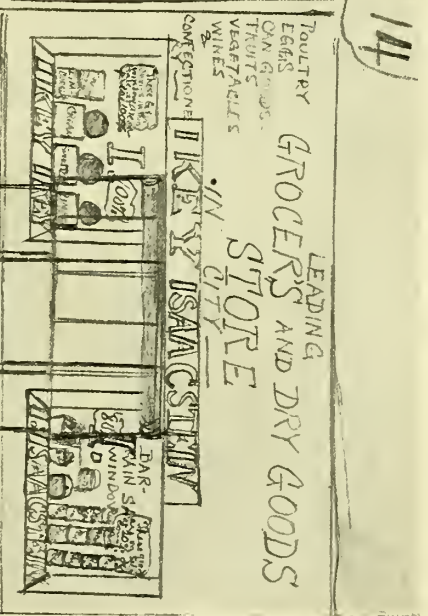 14
LEADING
GROCERS AND DRY GOODS
STORE
IN CITY
POULTRY
EGGS
CAN GOODS.
FRUITS
VEGETABLES
&
WINES
CONFECTIONE
IKEY ISAACSTEIN
I.
IKEY IKEY
BAR-
GAIN
WINDOW
I. ISAACSTEIN